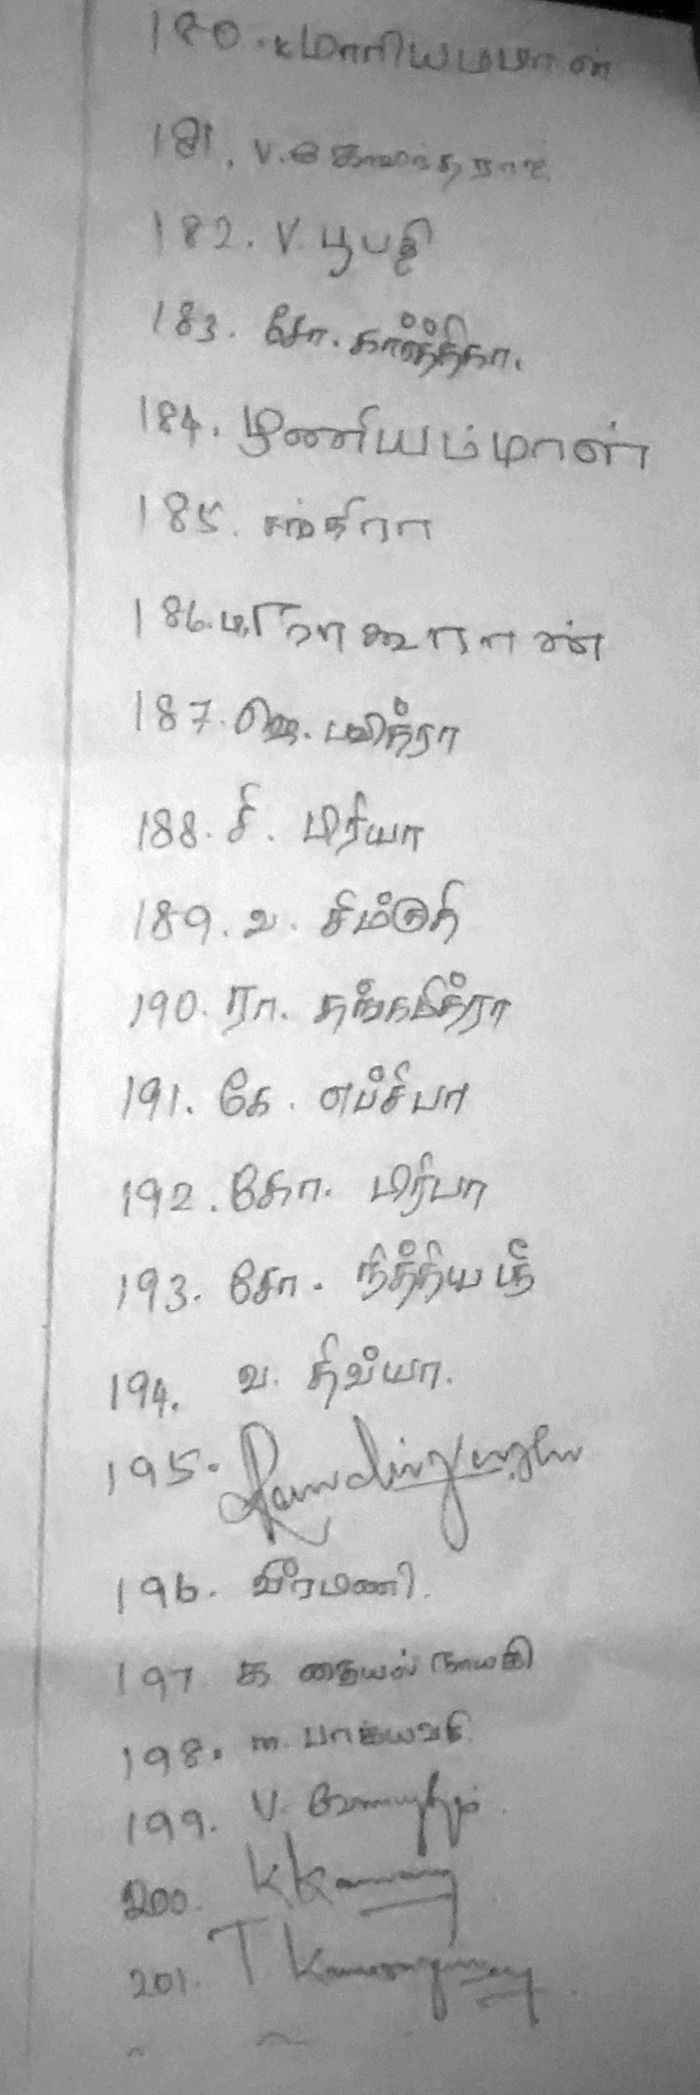 180. K மாரியம்மாள்
181. V. கோவிந்தராஜ்
182. V. பூபதி
183. சோ. கார்த்திகா.
184. முனியம்மாள்
185. சந்திரா
186.
187. ஜெ. பவித்ரா
188. சி. பிரியா
189. வ. சிம்ருதி
190. ரா. தங்கமித்ரா
191. கே. எப்சிபா
192. கோ. பிர்பா
193. சோ. நித்திய ஸ்ரீ
194. வ. திவ்யா.
195.
196. வீரமணி.
197 க தையல் நாயகி
198. m. பாக்யவதி
199. V. வேலாயுதம்.
200. K
201. T